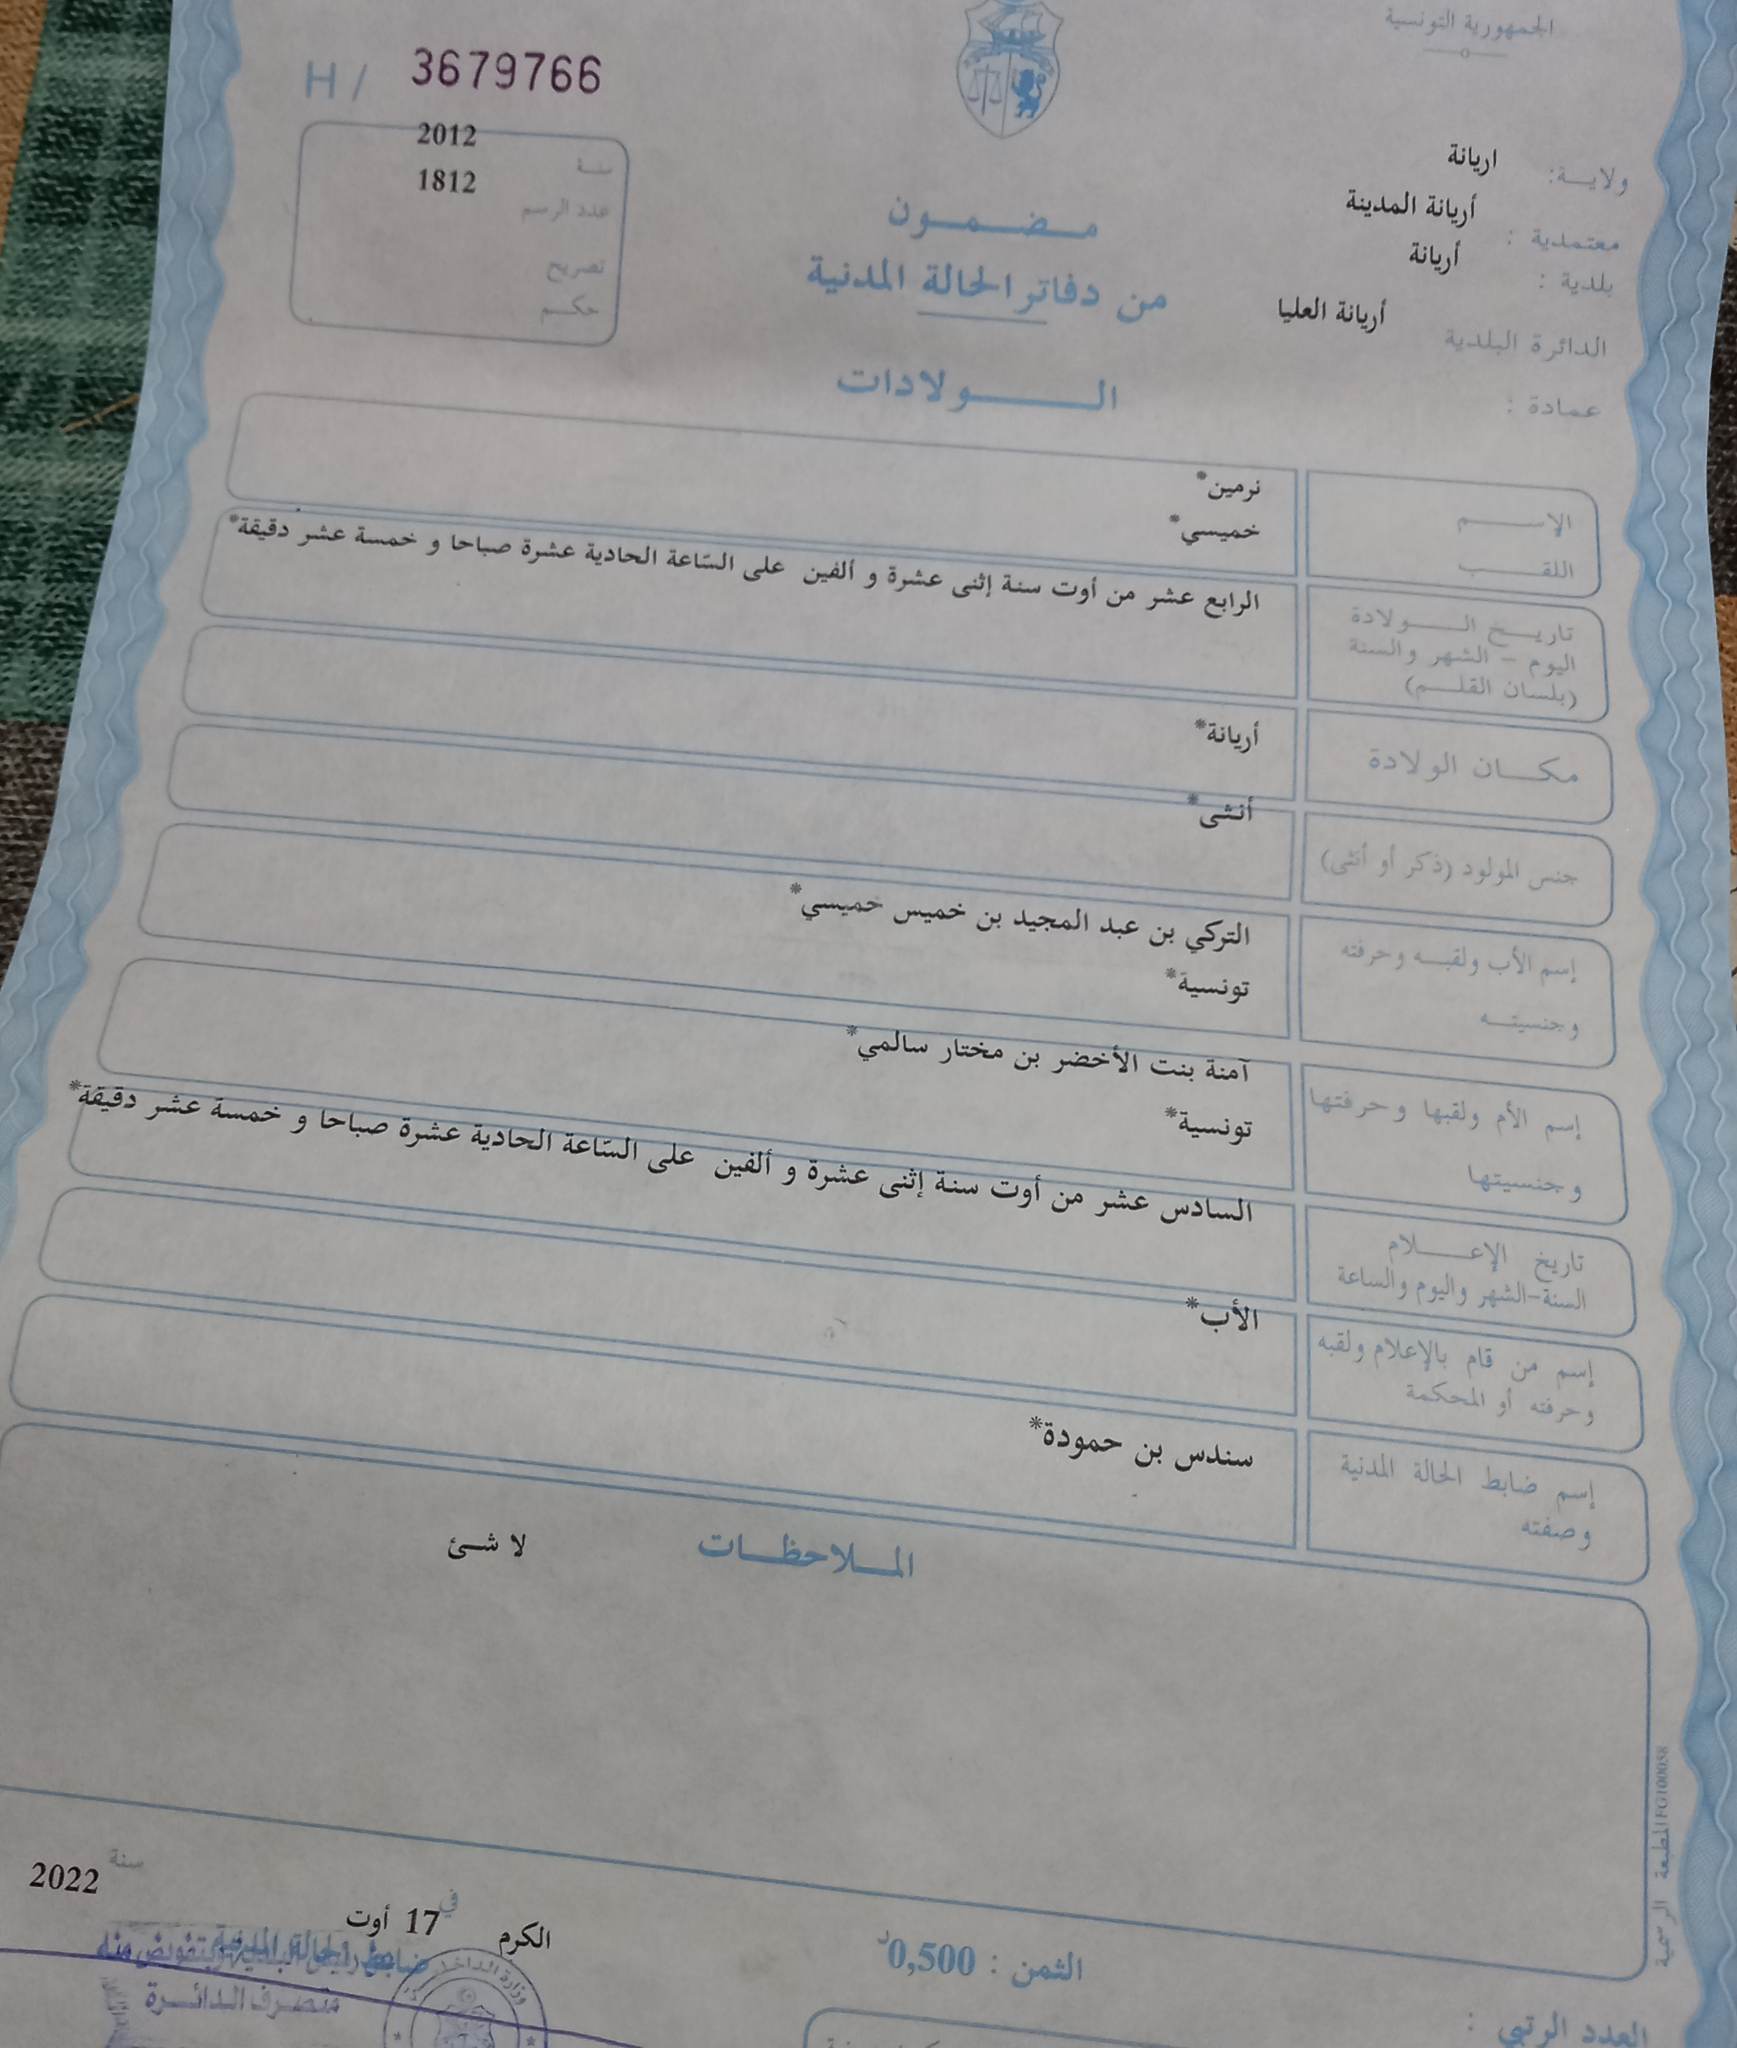 الجمهورية التونسية
H / 3679766
ولايـــة: اريانة
معتمدية : أريانة المدينة
بلدية : أريانة
الدائرة البلدية أريانة العليا
عمادة :
سنـة 2012
عدد الرسم 1812
تصريح
حكـم
مـضـمـون
من دفاتر الحالة المدنية
الـولادات
الإســـم نرمين*
اللقـــب خميسي*
تاريـخ الـولادة
اليوم - الشهر والسنة
(بلسان القلـم)
الرابع عشر من أوت سنة إثنى عشرة و ألفين على الساعة الحادية عشرة صباحا و خمسة عشر دقيقة*
مكـان الولادة أريانة*
جنس المولود (ذكر أو أنثى) أنثى*
إسم الأب ولقبـه وحرفته التركي بن عبد المجيد بن خميس خميسي*
وجنسيتـه تونسية*
إسم الأم ولقبها وحرفتها آمنة بنت الأخضر بن مختار سالمي*
وجنسيتها تونسية*
تاريخ الإعـلام
السنة-الشهر واليوم والساعة
السادس عشر من أوت سنة إثنى عشرة و ألفين على الساعة الحادية عشرة صباحا و خمسة عشر دقيقة*
إسم من قام بالإعلام ولقبه
وحرفته أو المحكمة
الأب*
إسم ضابط الحالة المدنية
وصفته
سندس بن حمودة*
المـلاحظـات لا شئ
المطبعة الرسمية FG100058
الكرم في 17 أوت سنة 2022
متصرف الدائـرة
وزارة الداخلية
الثمن : 0,500د
العدد الرتبي :